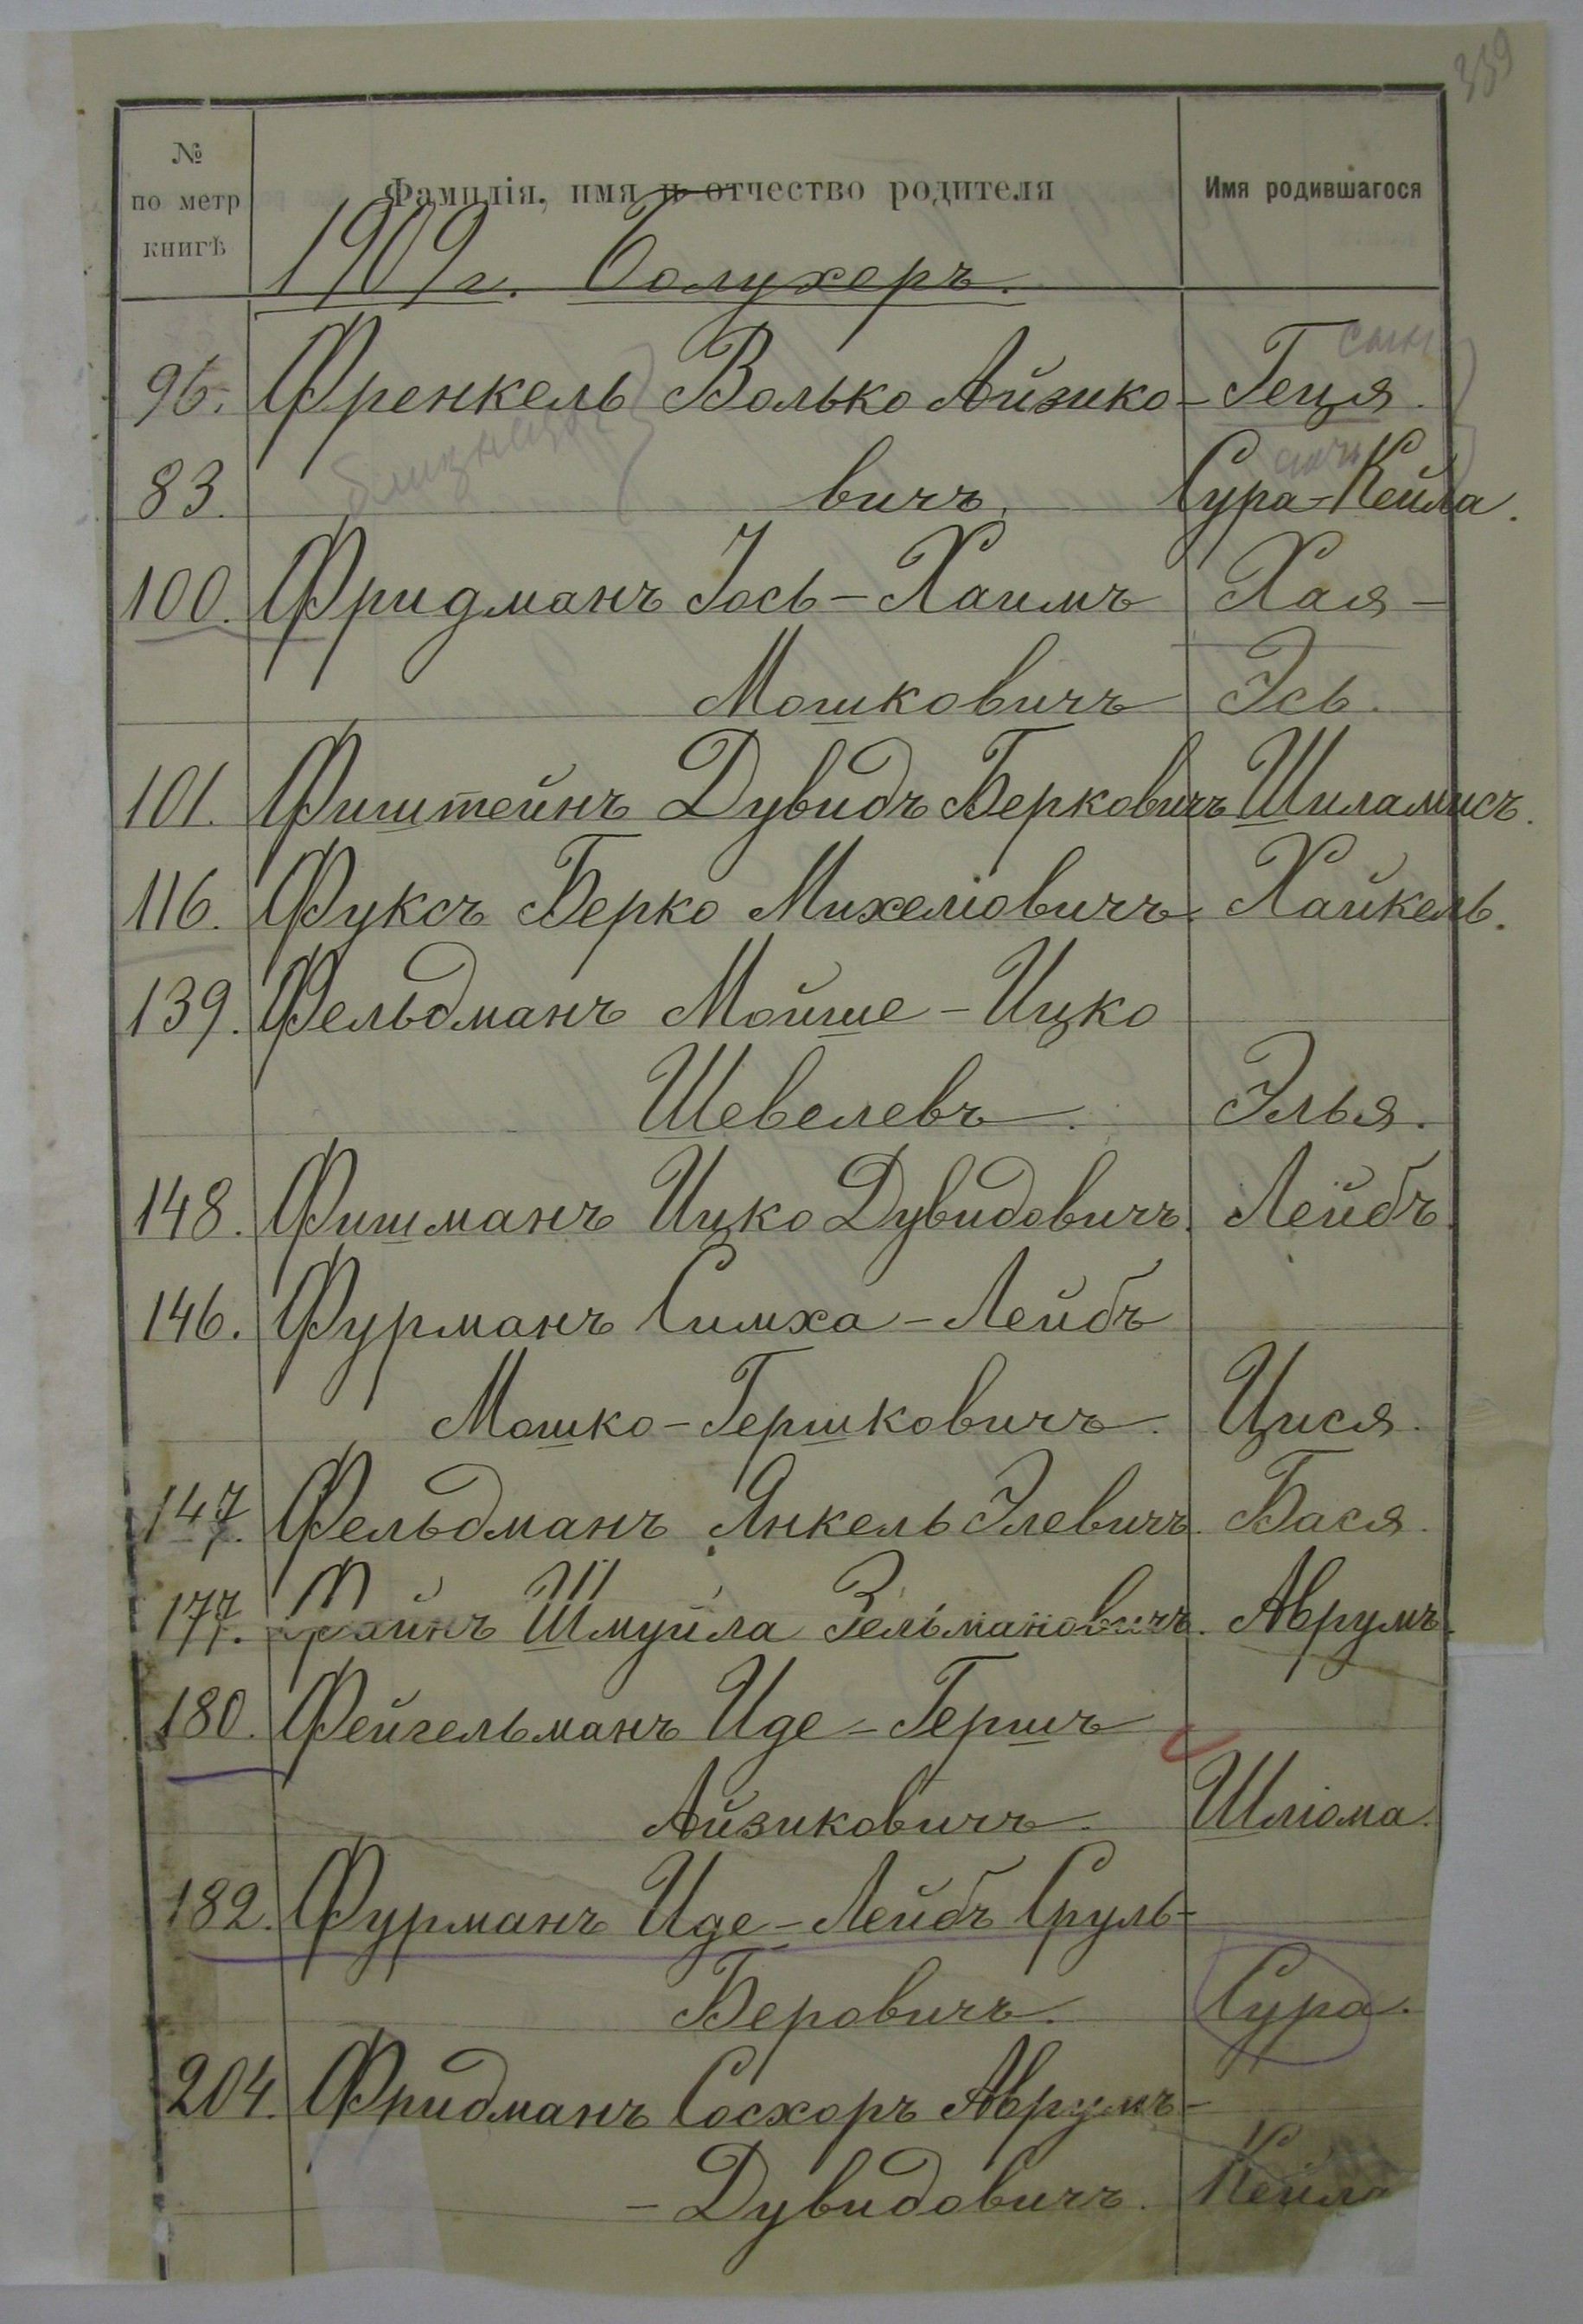 339
№ по метр книгѣ
Фамилія, имя и отчество родителя
Имя родившагося
1909 г.
сын
96. Френкель Волько Айзико- Геця.
близнецы
83. вичъ. Сура-Кейла.
100. Фридманъ Іось-Хаимъ Хая-
Мошковичъ Эсь.
101. Фиштейнъ Дувидъ Берковичъ Шиламисъ.
116. Фуксъ Берко Михеліовичъ. Хайкель.
139. Фельдманъ Мойше-Ицко
Шевелевъ. Элья.
148. Фишманъ Ицко Дувидовичъ. Лейбъ.
146. Фурманъ Симха-Лейбъ
Мошко-Гершковичъ. Цися.
147. Фельдманъ Янкель Элевичъ. Бася.
177. Файнъ Шмуйла Зельмановичъ. Аврумъ.
180. Фейгельманъ Иде-Гершъ
Айзиковичъ. Шліома.
182. Фурманъ Иде-Лейбъ Сруль-
Беровичъ. Сура.
204. Фридманъ Сосхоръ Аврумъ-
-Дувидовичъ. Кейла